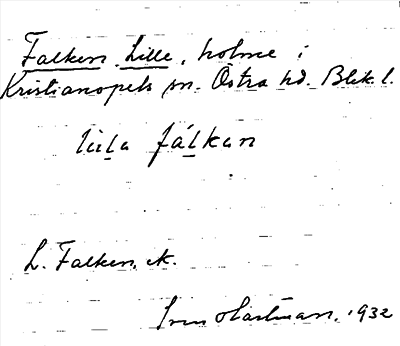 Falken, Lille, holme i
Kristianopels sn. Östra hd. Blek. l.
lìla fálkan
L. Falken, ek.
Sven Hartman, 1932